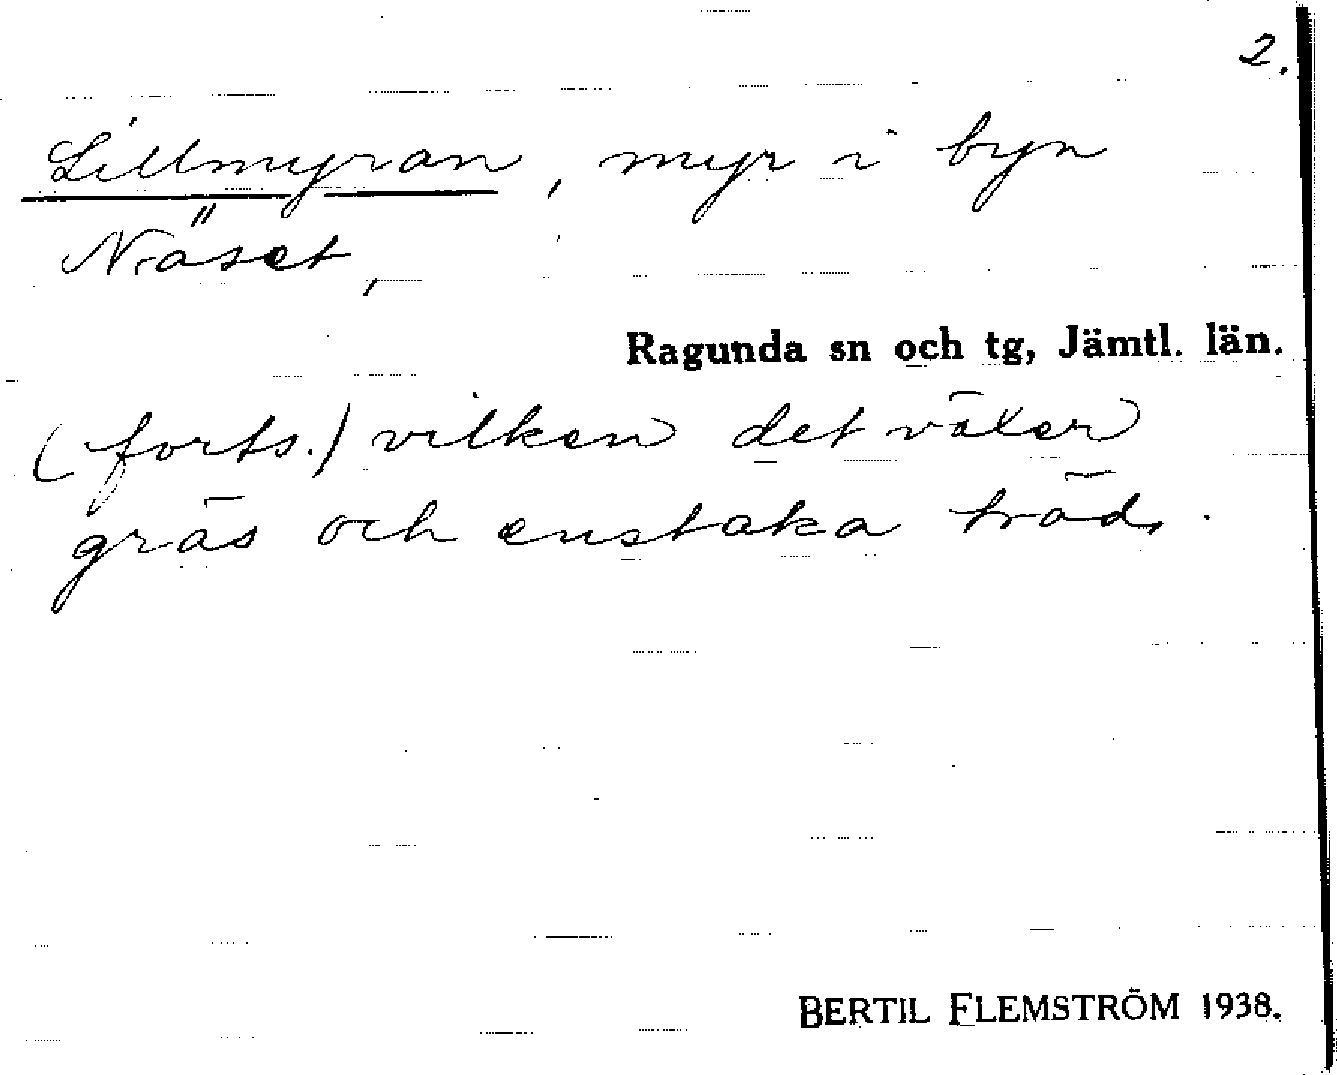 2.
Lillmyran, myr i byn
Näset,
Ragunda sn och tg, Jämtl. län.
(forts.) vilken det växer
gräs och enstaka träd.
BERTIL FLEMSTRÖM 1938.